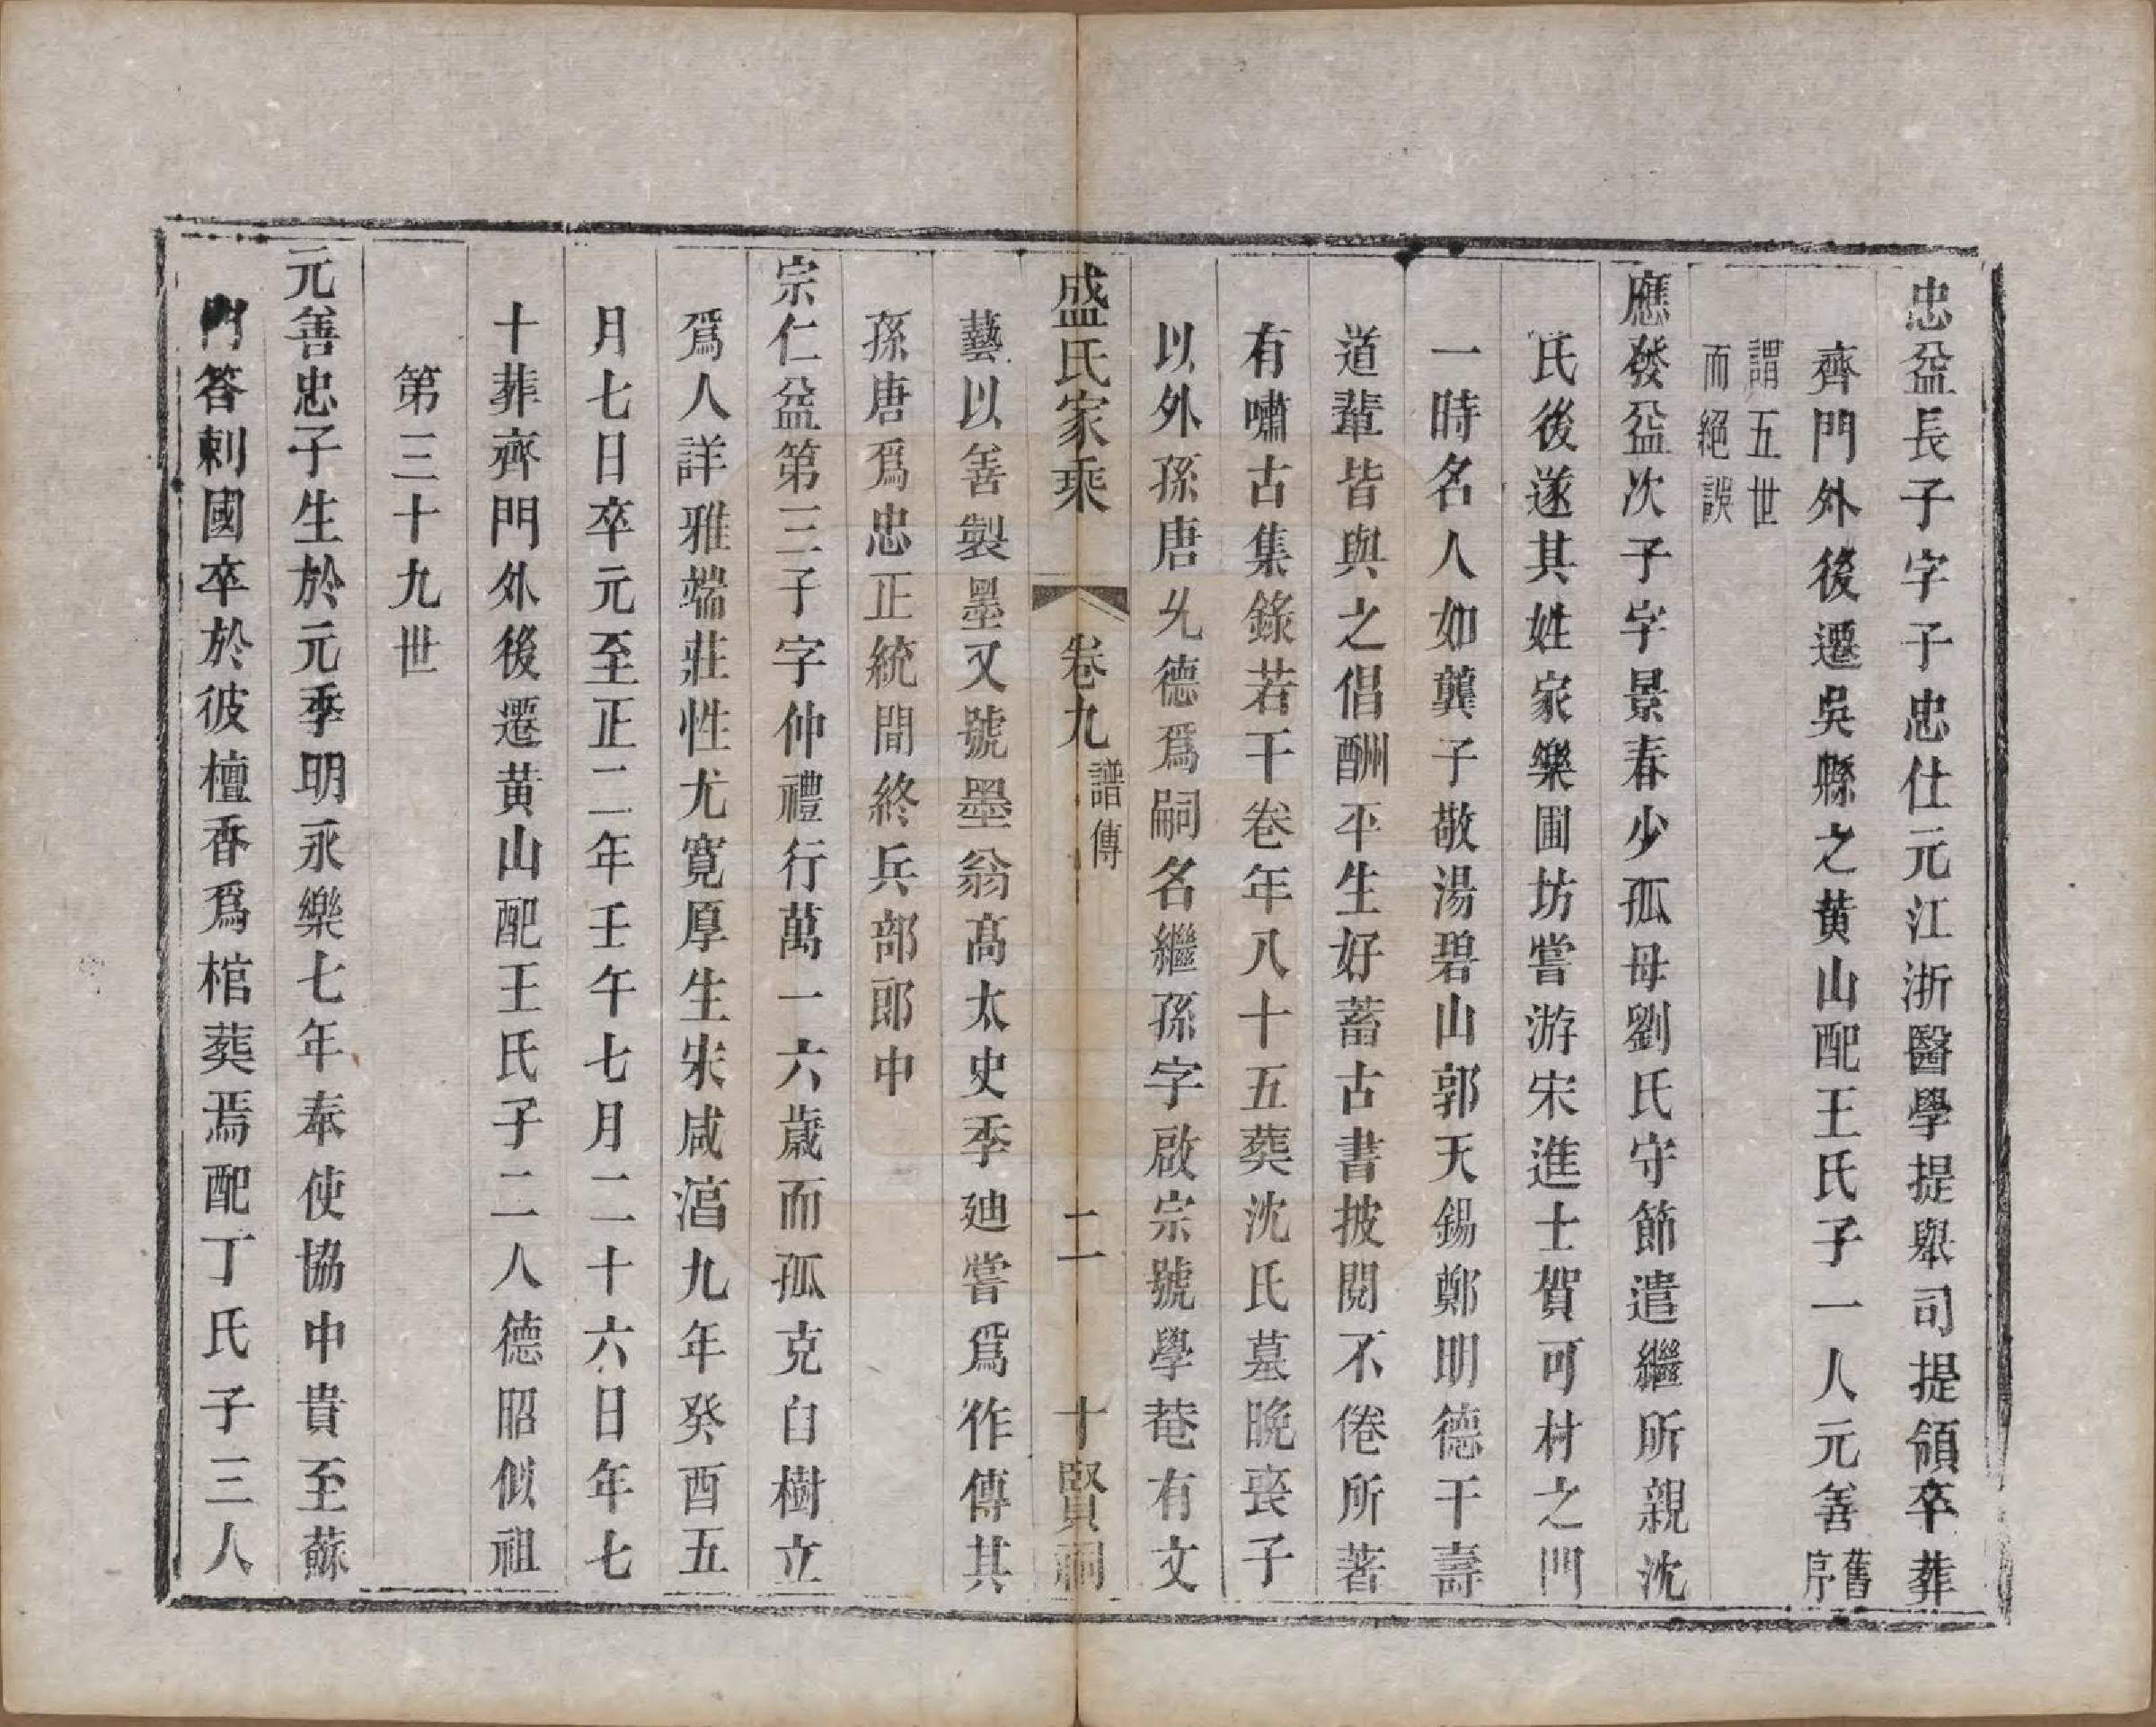 忠益長子字子忠仕元江浙醫學提舉司提領卒葬
齊門外後遷吳縣之黃山配王氏子一人元善舊序
謂五世
而絕誤
應發益次子字景春少孤母劉氏守節遣繼所親沈
氏後遂其姓家樂圃坊嘗游宋進士賀可村之門
一時名人如龔子敬湯碧山郭天錫鄭明德干壽
道輩皆與之倡酬平生好蓄古書披閱不倦所著
有嘯古集錄若干卷年八十五葬沈氏墓晚喪子
以外孫唐允德爲嗣名繼孫字啟宗號學菴有文
盛氏家乘 卷九 譜傳 二 十賢祠
藝以善製墨又號墨翁高太史季廸嘗爲作傳其
孫唐爲忠正統間終兵部郎中
宗仁益第三子字仲禮行萬一六歲而孤克自樹立
爲人詳雅端莊性尤寬厚生宋咸湻九年癸酉五
月七日卒元至正二年壬午七月二十六日年七
十葬齊門外後遷黃山配王氏子二人德昭似祖
第三十九世
元善忠子生於元季明永樂七年奉使協中貴至蘇
門答剌國卒於彼檀香爲棺葬焉配丁氏子三人